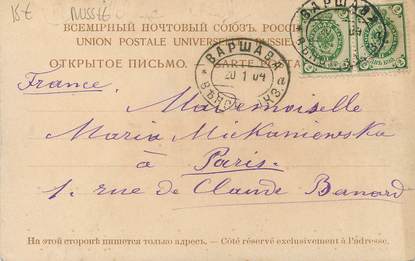 15€ RUSSIE
ВСЕМІРНЫЙ ПОЧТОВЫЙ СОЮЗЪ. РОССІ
UNION POSTALE UNIVERSELLE. RUSSIE.
ОТКРЫТОЕ ПИСЬМО. — CARTE POSTALE
ВАРШАВА
20 1 04
ВАРШАВА
France.
Mademoiselle
Maria Mickaniewska
à Paris.
1. rue de Claude Benard
На этой сторонѣ пишется только адресъ. — Côté réservé exclusivement à l'adresse.